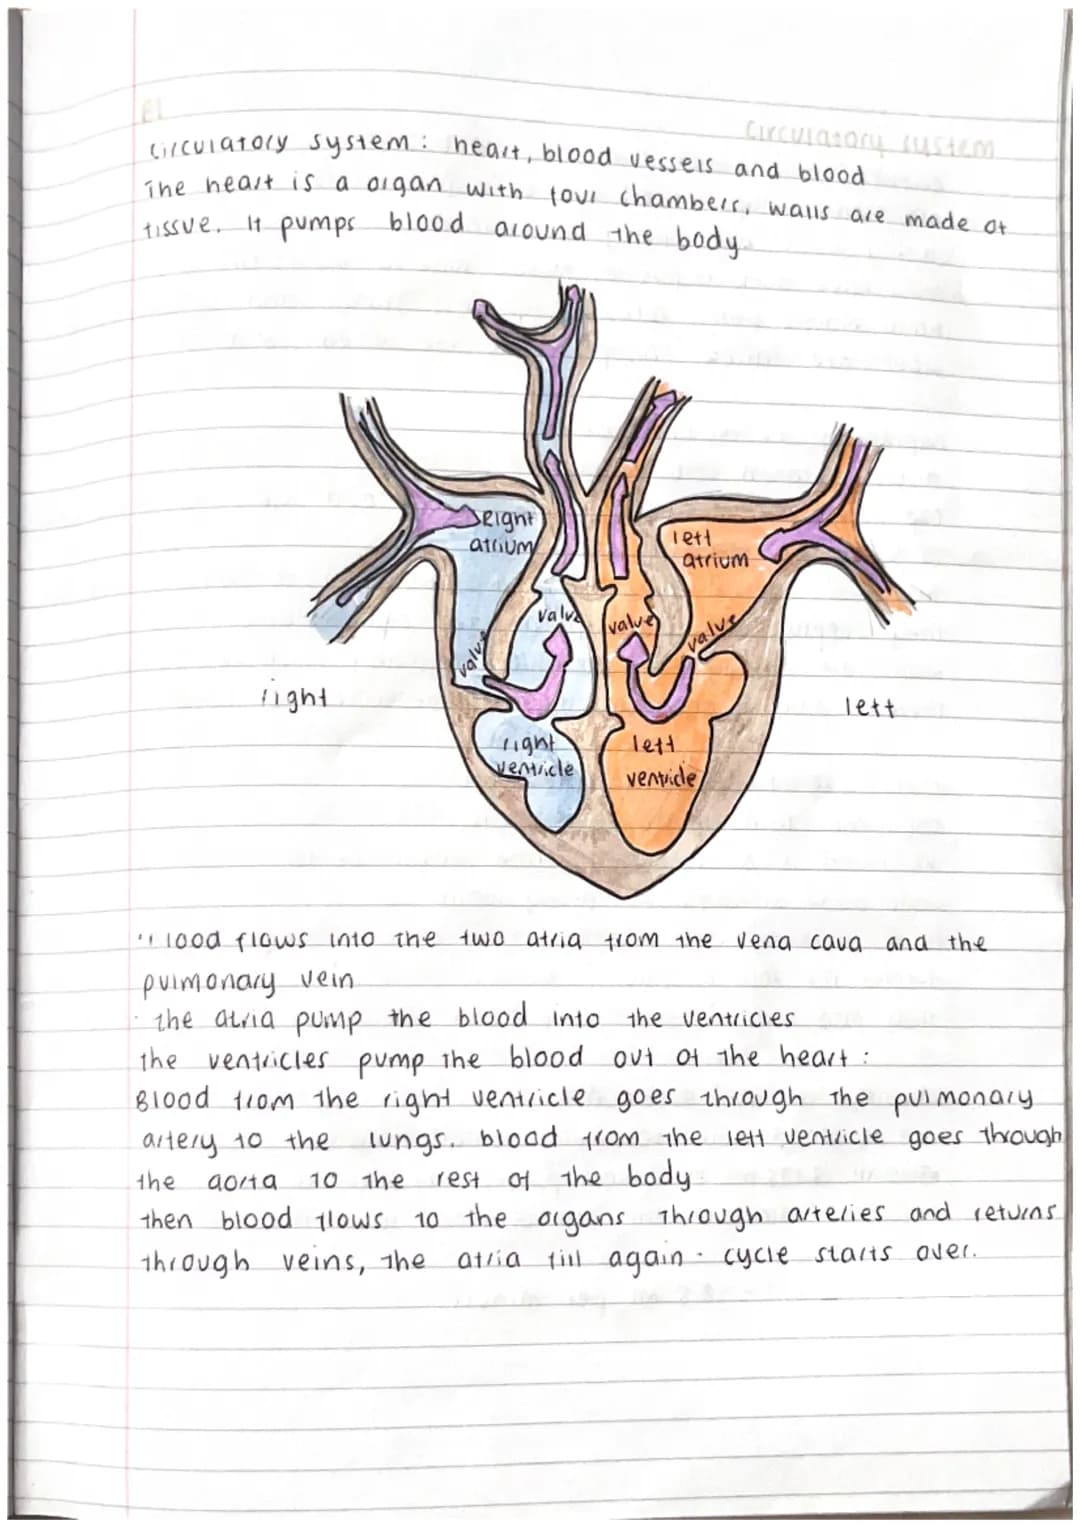 Circulatory system
Circulatory system: heart, blood vessels and blood
The heart is a organ with four chambers, walls are made of
tissue. It pumps blood around the body
Right
atrium
left
atrium
valve
valve
valve
valve
right
left
right
ventricle
left
ventricle
Blood flows into the two atria from the vena cava and the
pulmonary vein
· the atria pump the blood into the ventricles
the ventricles pump the blood out of the heart:
Blood from the right ventricle goes through the pulmonary
artery to the lungs. blood from the left ventricle goes through
the aorta to the rest of the body.
then blood flows to the organs through arteries and returns
through veins, the atria fill again · cycle starts over.